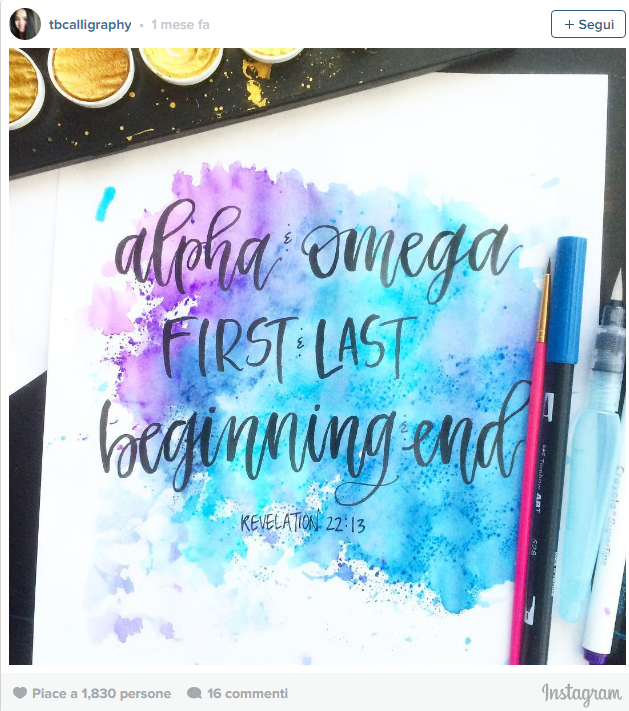 tbcalligraphy • 1 mese fa
+ Segui
alpha & omega
FIRST & LAST
beginning & end
REVELATION 22:13
Tombow ART
528
Piace a 1,830 persone
16 commenti
Instagram